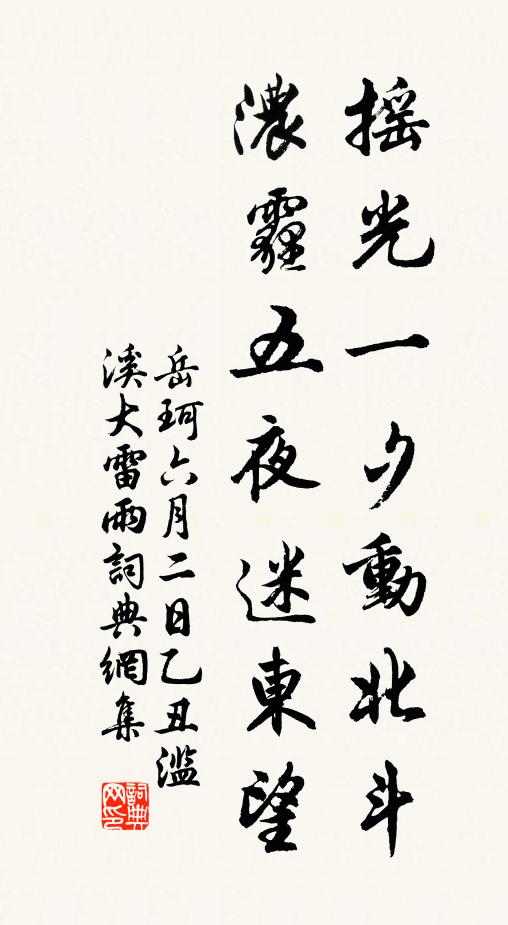 摇光一夕動北斗
濃霾五夜迷東望
岳珂六月二日乙丑濫
溪大雷雨詞典網集
詞典网印